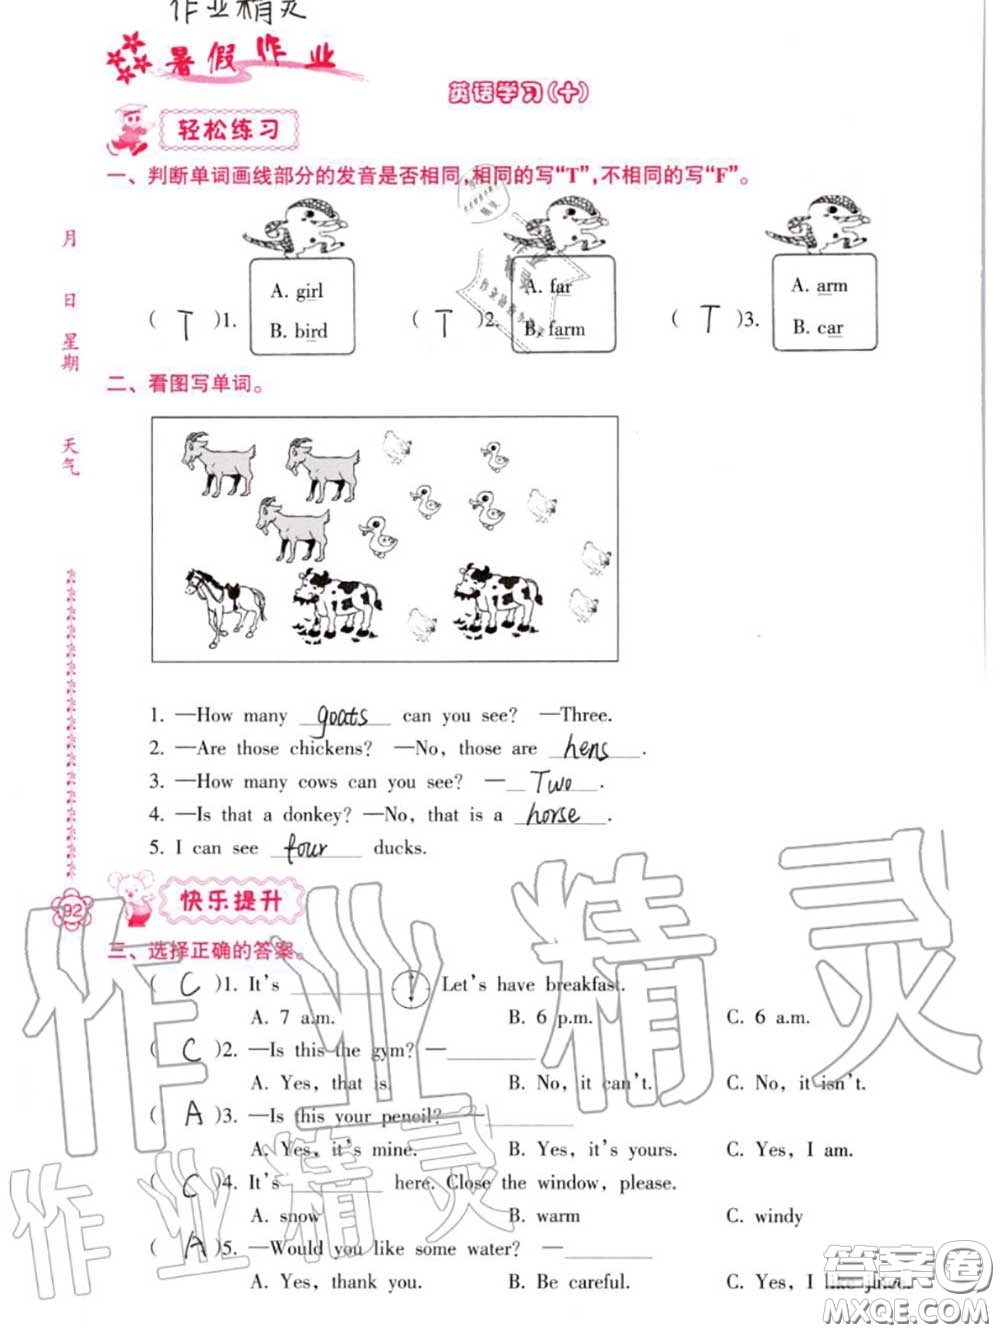 作业精灵
暑假作业
英语学习(十)
轻松练习
一、判断单词画线部分的发音是否相同,相同的写“T”,不相同的写“F”。
月
日
星期
天气
A. girl
B. bird
( T )1.
A. far
B. farm
( T )2.
A. arm
B. car
( T )3.
二、看图写单词。
1. —How many goats can you see? —Three.
2. —Are those chickens? —No, those are hens .
3. —How many cows can you see? — Two .
4. —Is that a donkey? —No, that is a horse .
5. I can see four ducks.
92
快乐提升
三、选择正确的答案。
( C )1. It's ______ Let's have breakfast.
A. 7 a.m. B. 6 p.m. C. 6 a.m.
( C )2. —Is this the gym? —______
A. Yes, that is. B. No, it can't. C. No, it isn't.
( A )3. —Is this your pencil? —______
A. Yes, it's mine. B. Yes, it's yours. C. Yes, I am.
( C )4. It's ______ here. Close the window, please.
A. snow B. warm C. windy
( A )5. —Would you like some water? —______
A. Yes, thank you. B. Be careful. C. Yes, I like juice.
作业精灵
作业精灵
答案圈
MXQE.COM